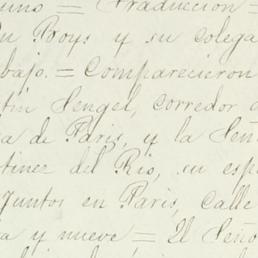 uno = Traduccion =
Du Boys y su colega
bajo. = Comparecieron
tin Sengel, corredor d
sa de Paris, y la Seño
tinez del Rio, su esp
juntos en Paris, Calle
a y nueve = El Seño